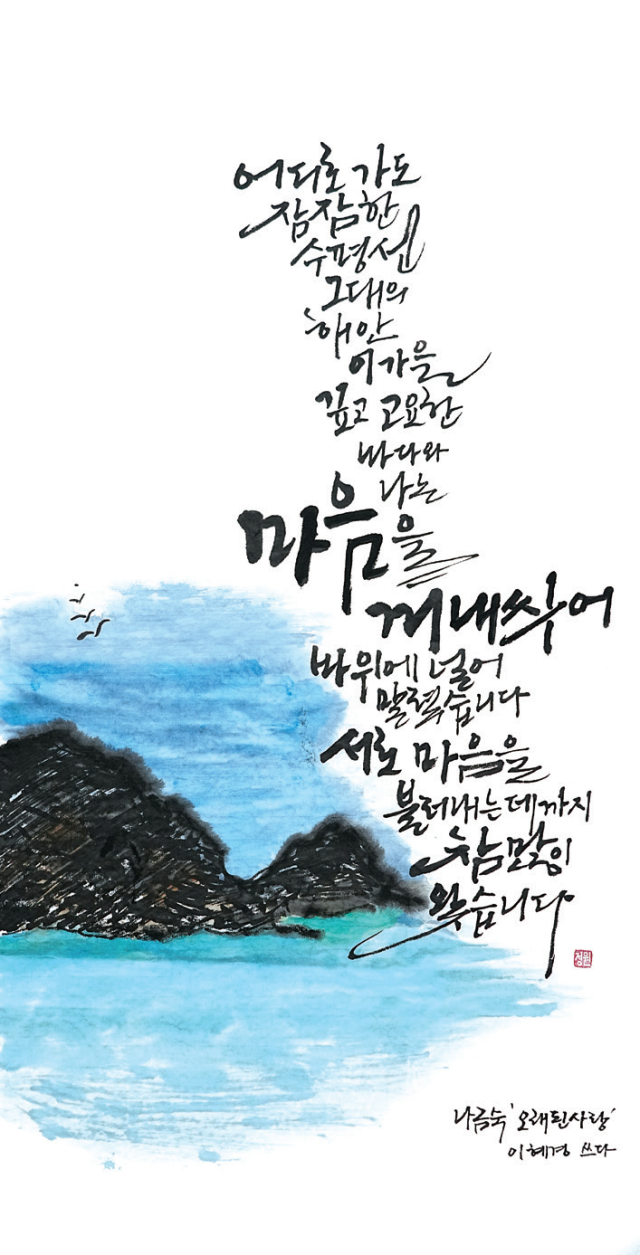 어디로 가도
잠잠한
수평선
그대의
해안
이가을
깊고 고요한
바다와
나는
마음을
꺼내 씻어
바위에 널어
말렸습니다
서로 마음을
불러내는데까지
참 많이
왔습니다
나금숙 '오래된 사랑'
이혜경 쓰다